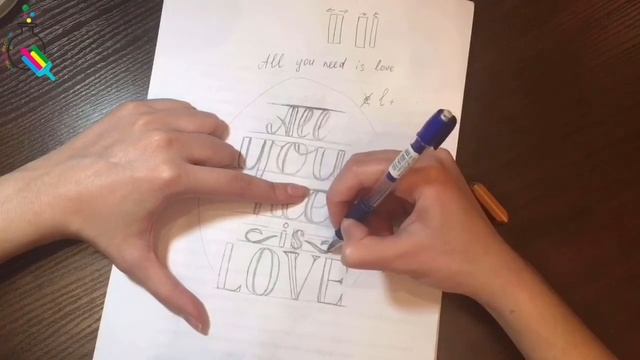 All you need is love
All
YOU
is
LOVE